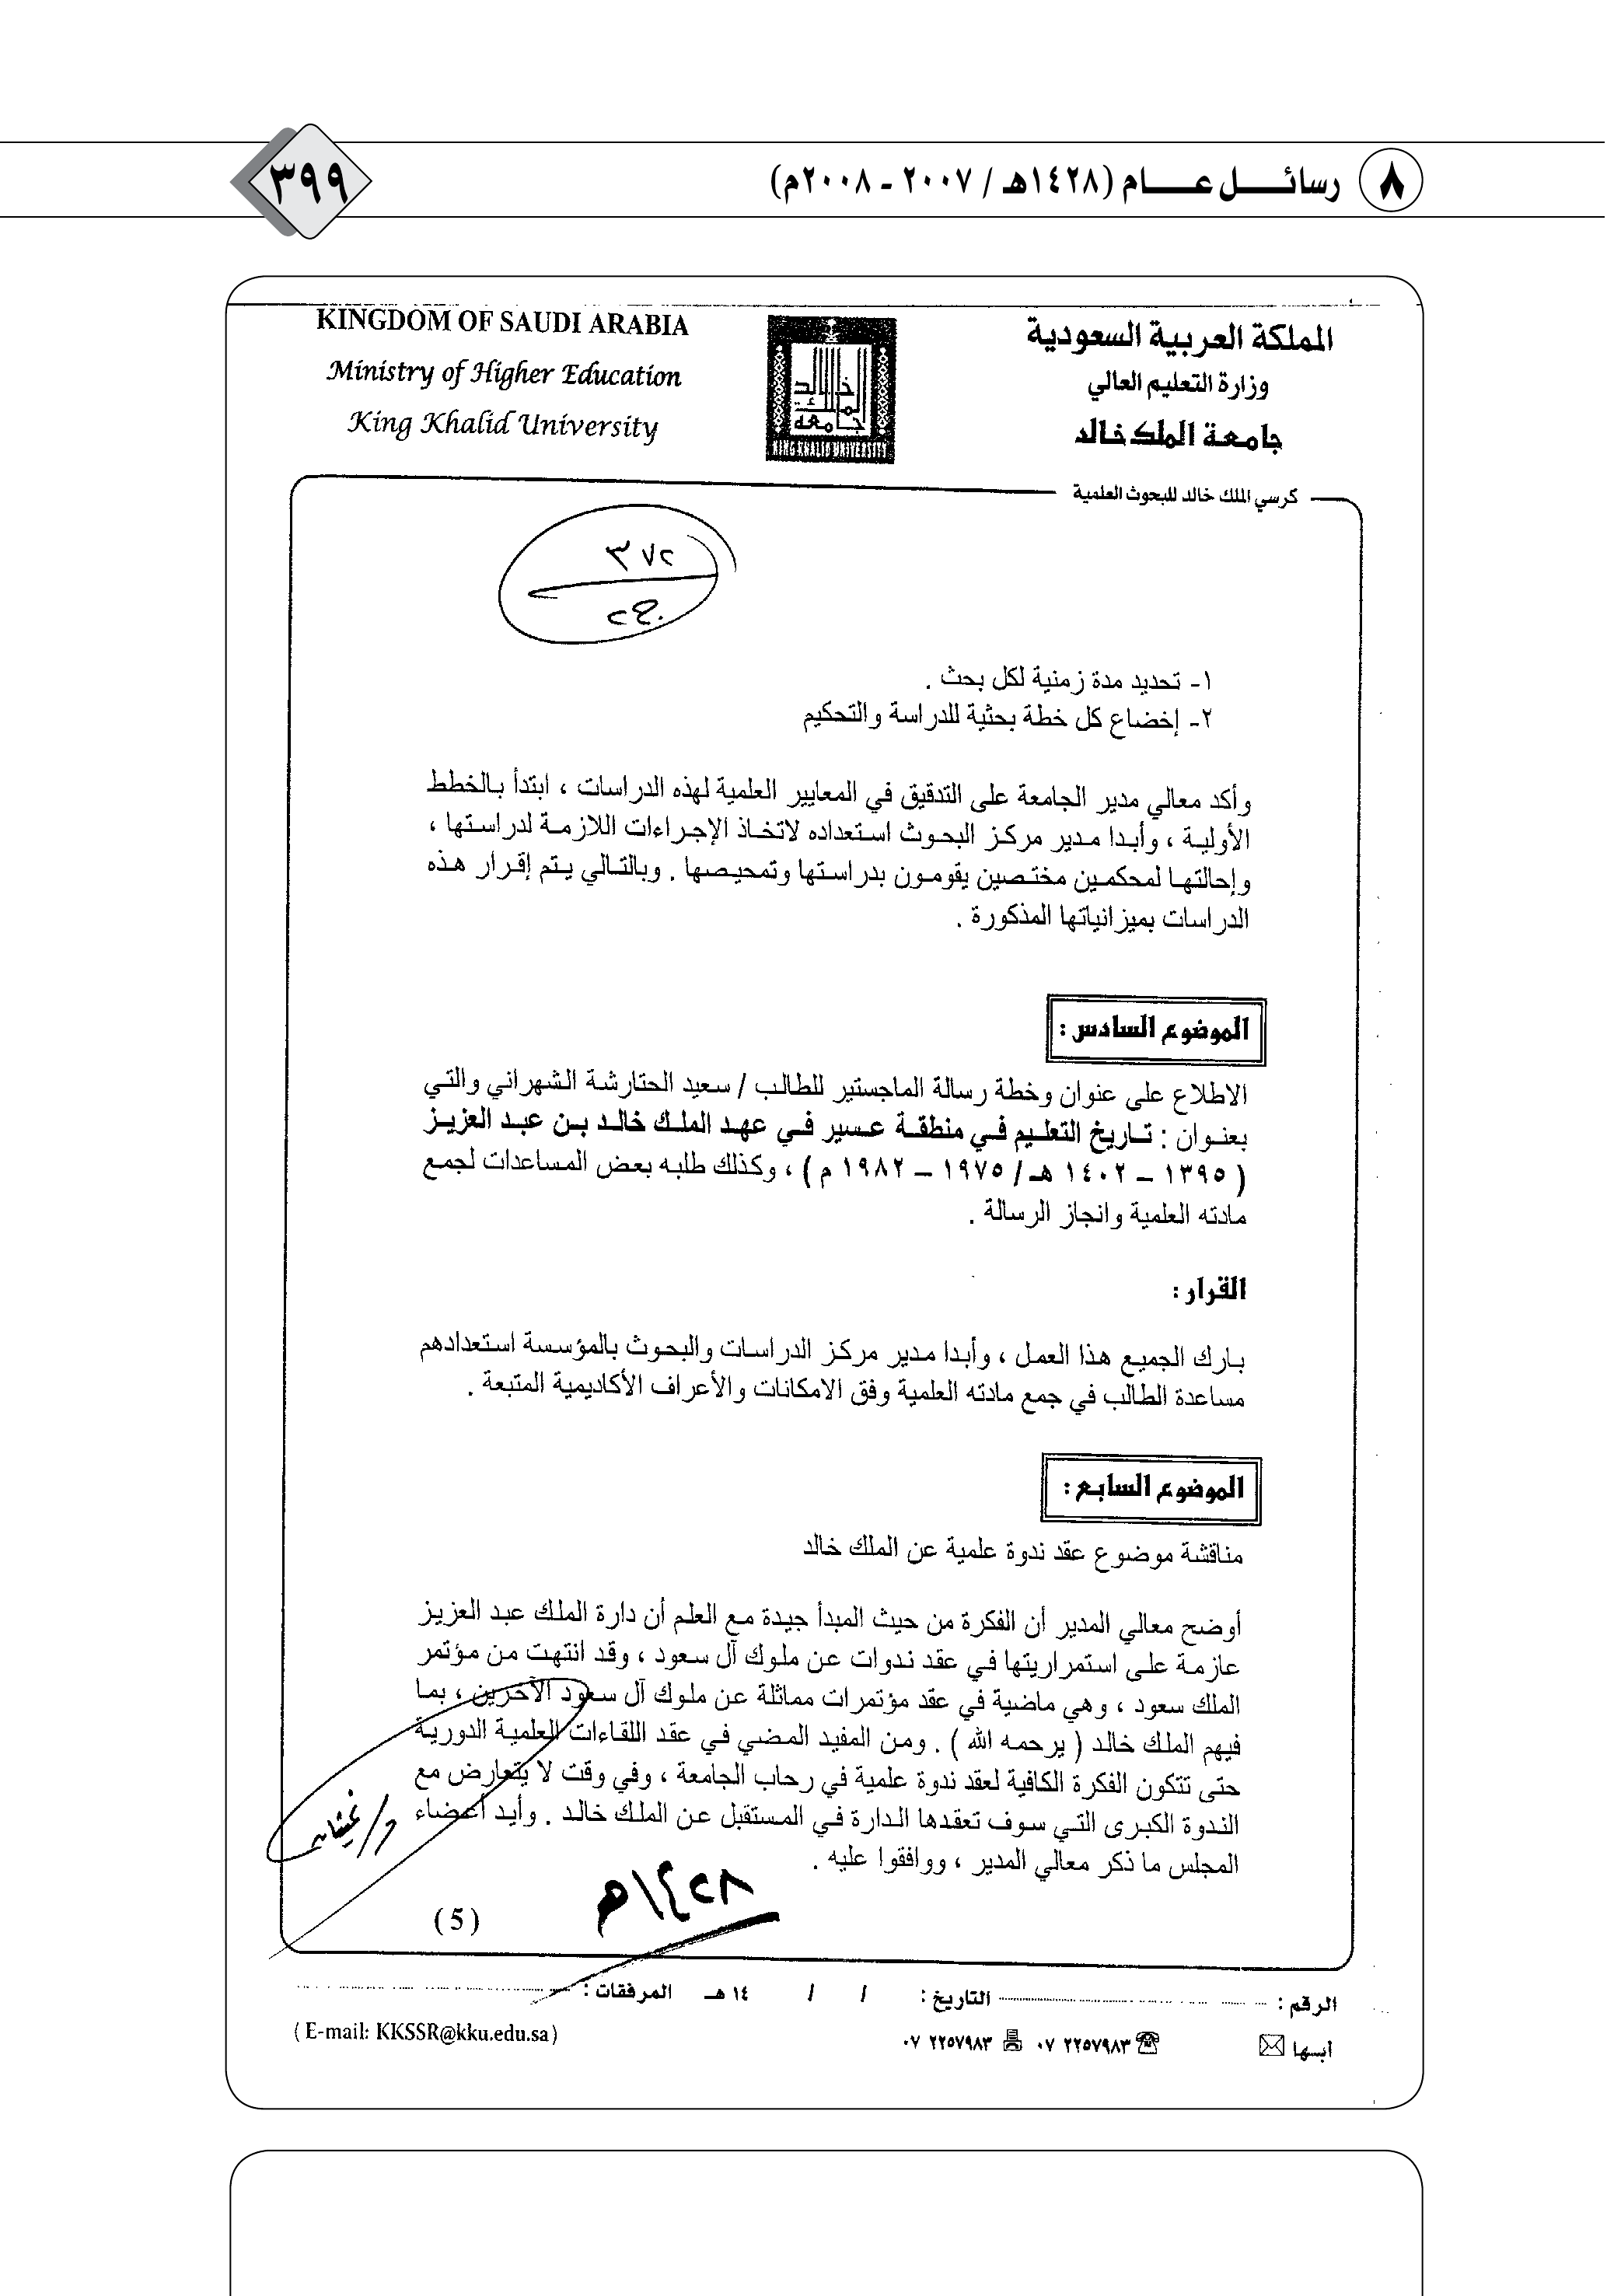 ٨ رسائل عام (١٤٢٨هـ / ٢٠٠٧ - ٢٠٠٨م)
٣٩٩
المملكة العربية السعودية
وزارة التعليم العالي
جامعة الملك خالد
KINGDOM OF SAUDI ARABIA
Ministry of Higher Education
King Khalid University
جامعة الملك خالد
كرسي الملك خالد للبحوث العلمية
٣٧٢
١- تحديد مدة زمنية لكل بحث .
٢- إخضاع كل خطة بحثية للدراسة والتحكيم
وأكد معالي مدير الجامعة على التدقيق في المعايير العلمية لهذه الدراسات ، ابتدأ بالخطط
الأولية ، وأبدا مدير مركز البحوث استعداده لاتخاذ الإجراءات اللازمة لدراستها ،
وإحالتها لمحكمين مختصين يقومون بدراستها وتمحيصها . وبالتالي يتم إقرار هذه
الدراسات بميزانياتها المذكورة .
الموضوع السادس :
الاطلاع على عنوان وخطة رسالة الماجستير للطالب / سعيد الحتارشة الشهراني والتي
بعنوان : تاريخ التعليم في منطقة عسير في عهد الملك خالد بن عبد العزيز
( ١٣٩٥ – ١٤٠٢ هـ / ١٩٧٥ – ١٩٨٢ م ) ، وكذلك طلبه بعض المساعدات لجمع
مادته العلمية وانجاز الرسالة .
القرار :
بارك الجميع هذا العمل ، وأبدا مدير مركز الدراسات والبحوث بالمؤسسة استعدادهم
مساعدة الطالب في جمع مادته العلمية وفق الامكانات والأعراف الأكاديمية المتبعة .
الموضوع السابع :
مناقشة موضوع عقد ندوة علمية عن الملك خالد
أوضح معالي المدير أن الفكرة من حيث المبدأ جيدة مع العلم أن دارة الملك عبد العزيز
عازمة على استمراريتها في عقد ندوات عن ملوك آل سعود ، وقد انتهت من مؤتمر
الملك سعود ، وهي ماضية في عقد مؤتمرات مماثلة عن ملوك آل سعود الآخرين ، بما
فيهم الملك خالد ( يرحمه الله ) . ومن المفيد المضي في عقد اللقاءات العلمية الدورية
حتى تتكون الفكرة الكافية لعقد ندوة علمية في رحاب الجامعة ، وفي وقت لا يتعارض مع
الندوة الكبرى التي سوف تعقدها الدارة في المستقبل عن الملك خالد . وأيد أعضاء
المجلس ما ذكر معالي المدير ، ووافقوا عليه .
١٤٢٨هـ
(5)
الرقم : التاريخ : / / ١٤ هـ المرفقات :
أبها ٢٢٥٧٩٨٣ ٠٧ ٢٢٥٧٩٨٣ ٠٧
( E-mail: KKSSR@kku.edu.sa )